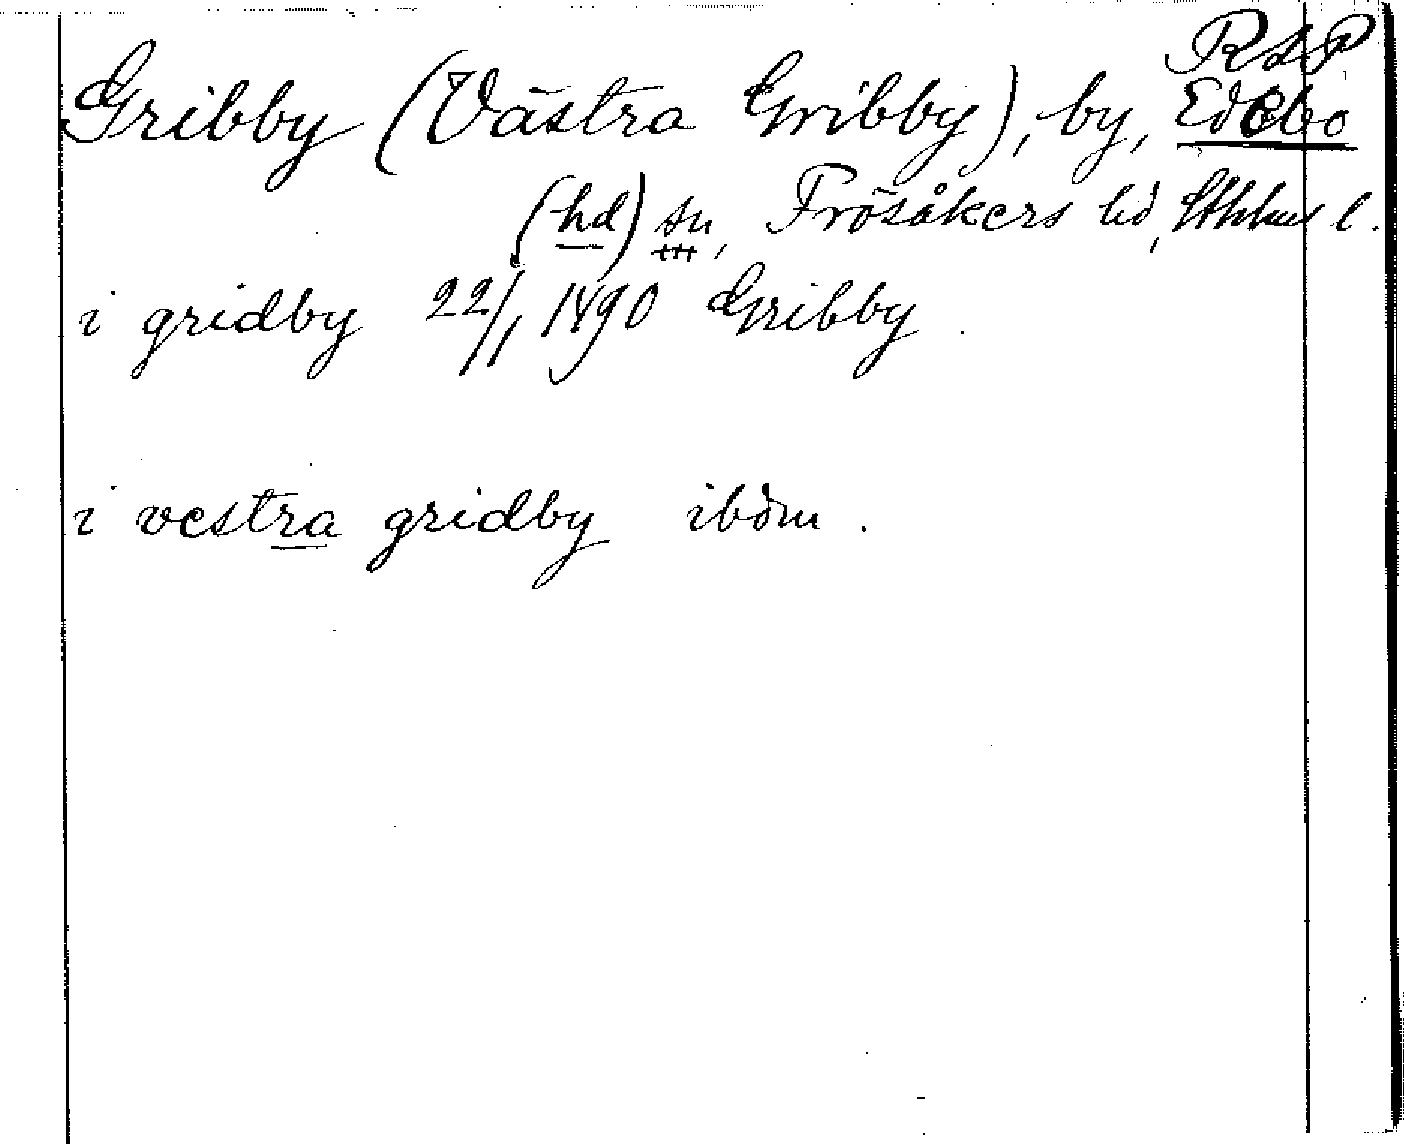 RAP
Gribby (Västra Gribby), by, Edebo
(hd) sn, Frösåkers hd, Sthlms l.
i gridby 22/1 1490 Gribby.
i vestra gridby ibdm.